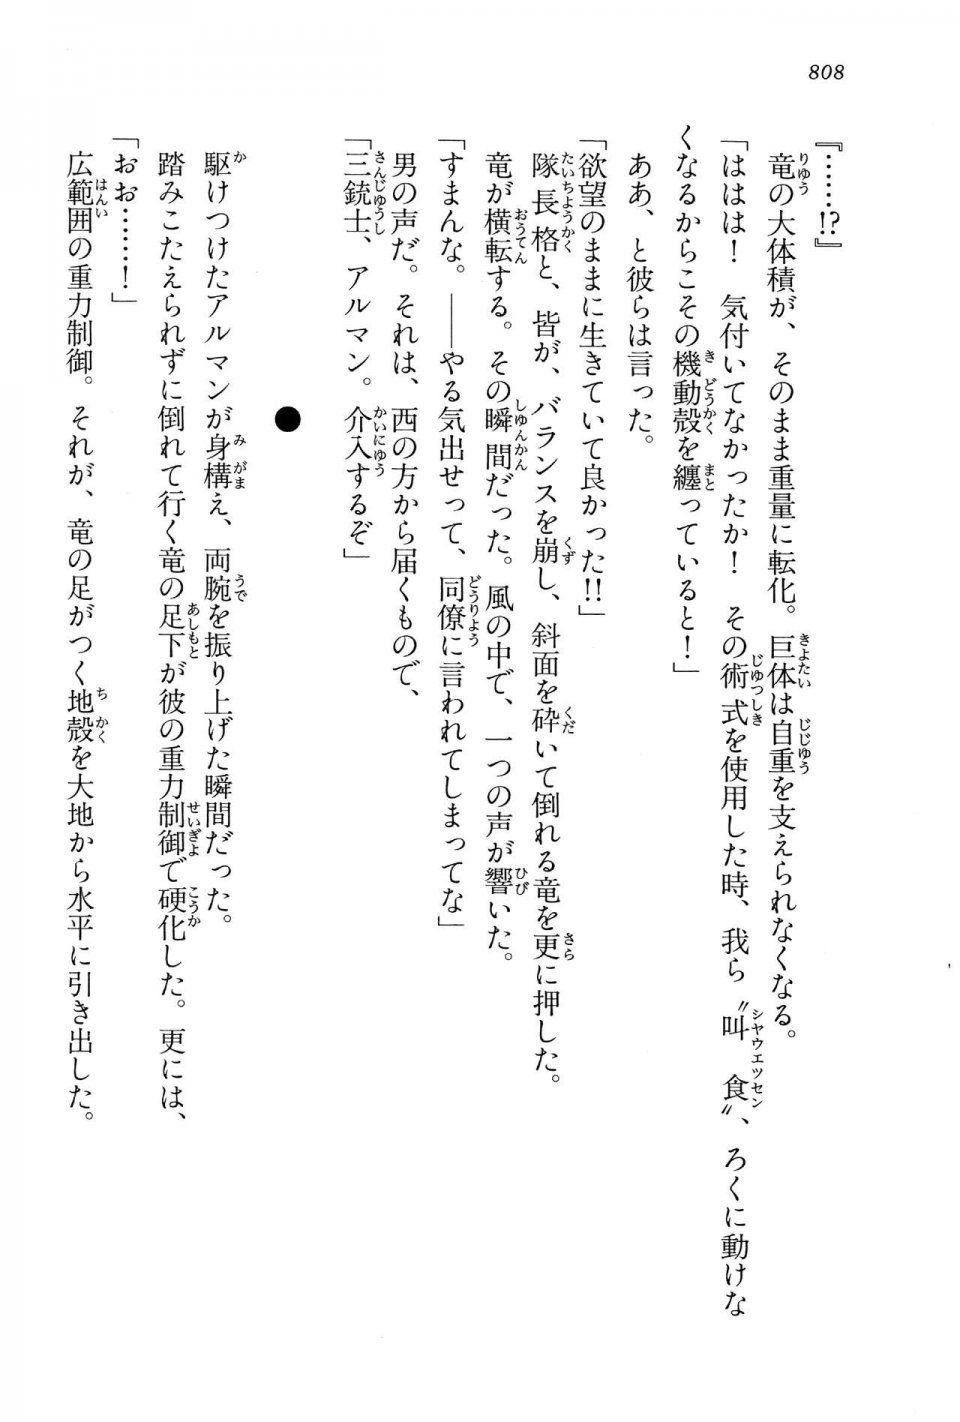 808
『……!?』
竜の大体積が、そのまま重量に転化。巨体は自重を支えられなくなる。
「ははは！　気付いてなかったか！　その術式を使用した時、我ら〝叫食〟、ろくに動けな
くなるからこその機動殻を纏っていると！」
ああ、と彼らは言った。
「欲望のままに生きていて良かった!!」
隊長格と、皆が、バランスを崩し、斜面を砕いて倒れる竜を更に押した。
竜が横転する。その瞬間だった。風の中で、一つの声が響いた。
「すまんな。――やる気出せって、同僚に言われてしまってな」
男の声だ。それは、西の方から届くもので、
「三銃士、アルマン。介入するぞ」
●
駆けつけたアルマンが身構え、両腕を振り上げた瞬間だった。
踏みこたえられずに倒れて行く竜の足下が彼の重力制御で硬化した。更には、
「おお……！」
広範囲の重力制御。それが、竜の足がつく地殻を大地から水平に引き出した。